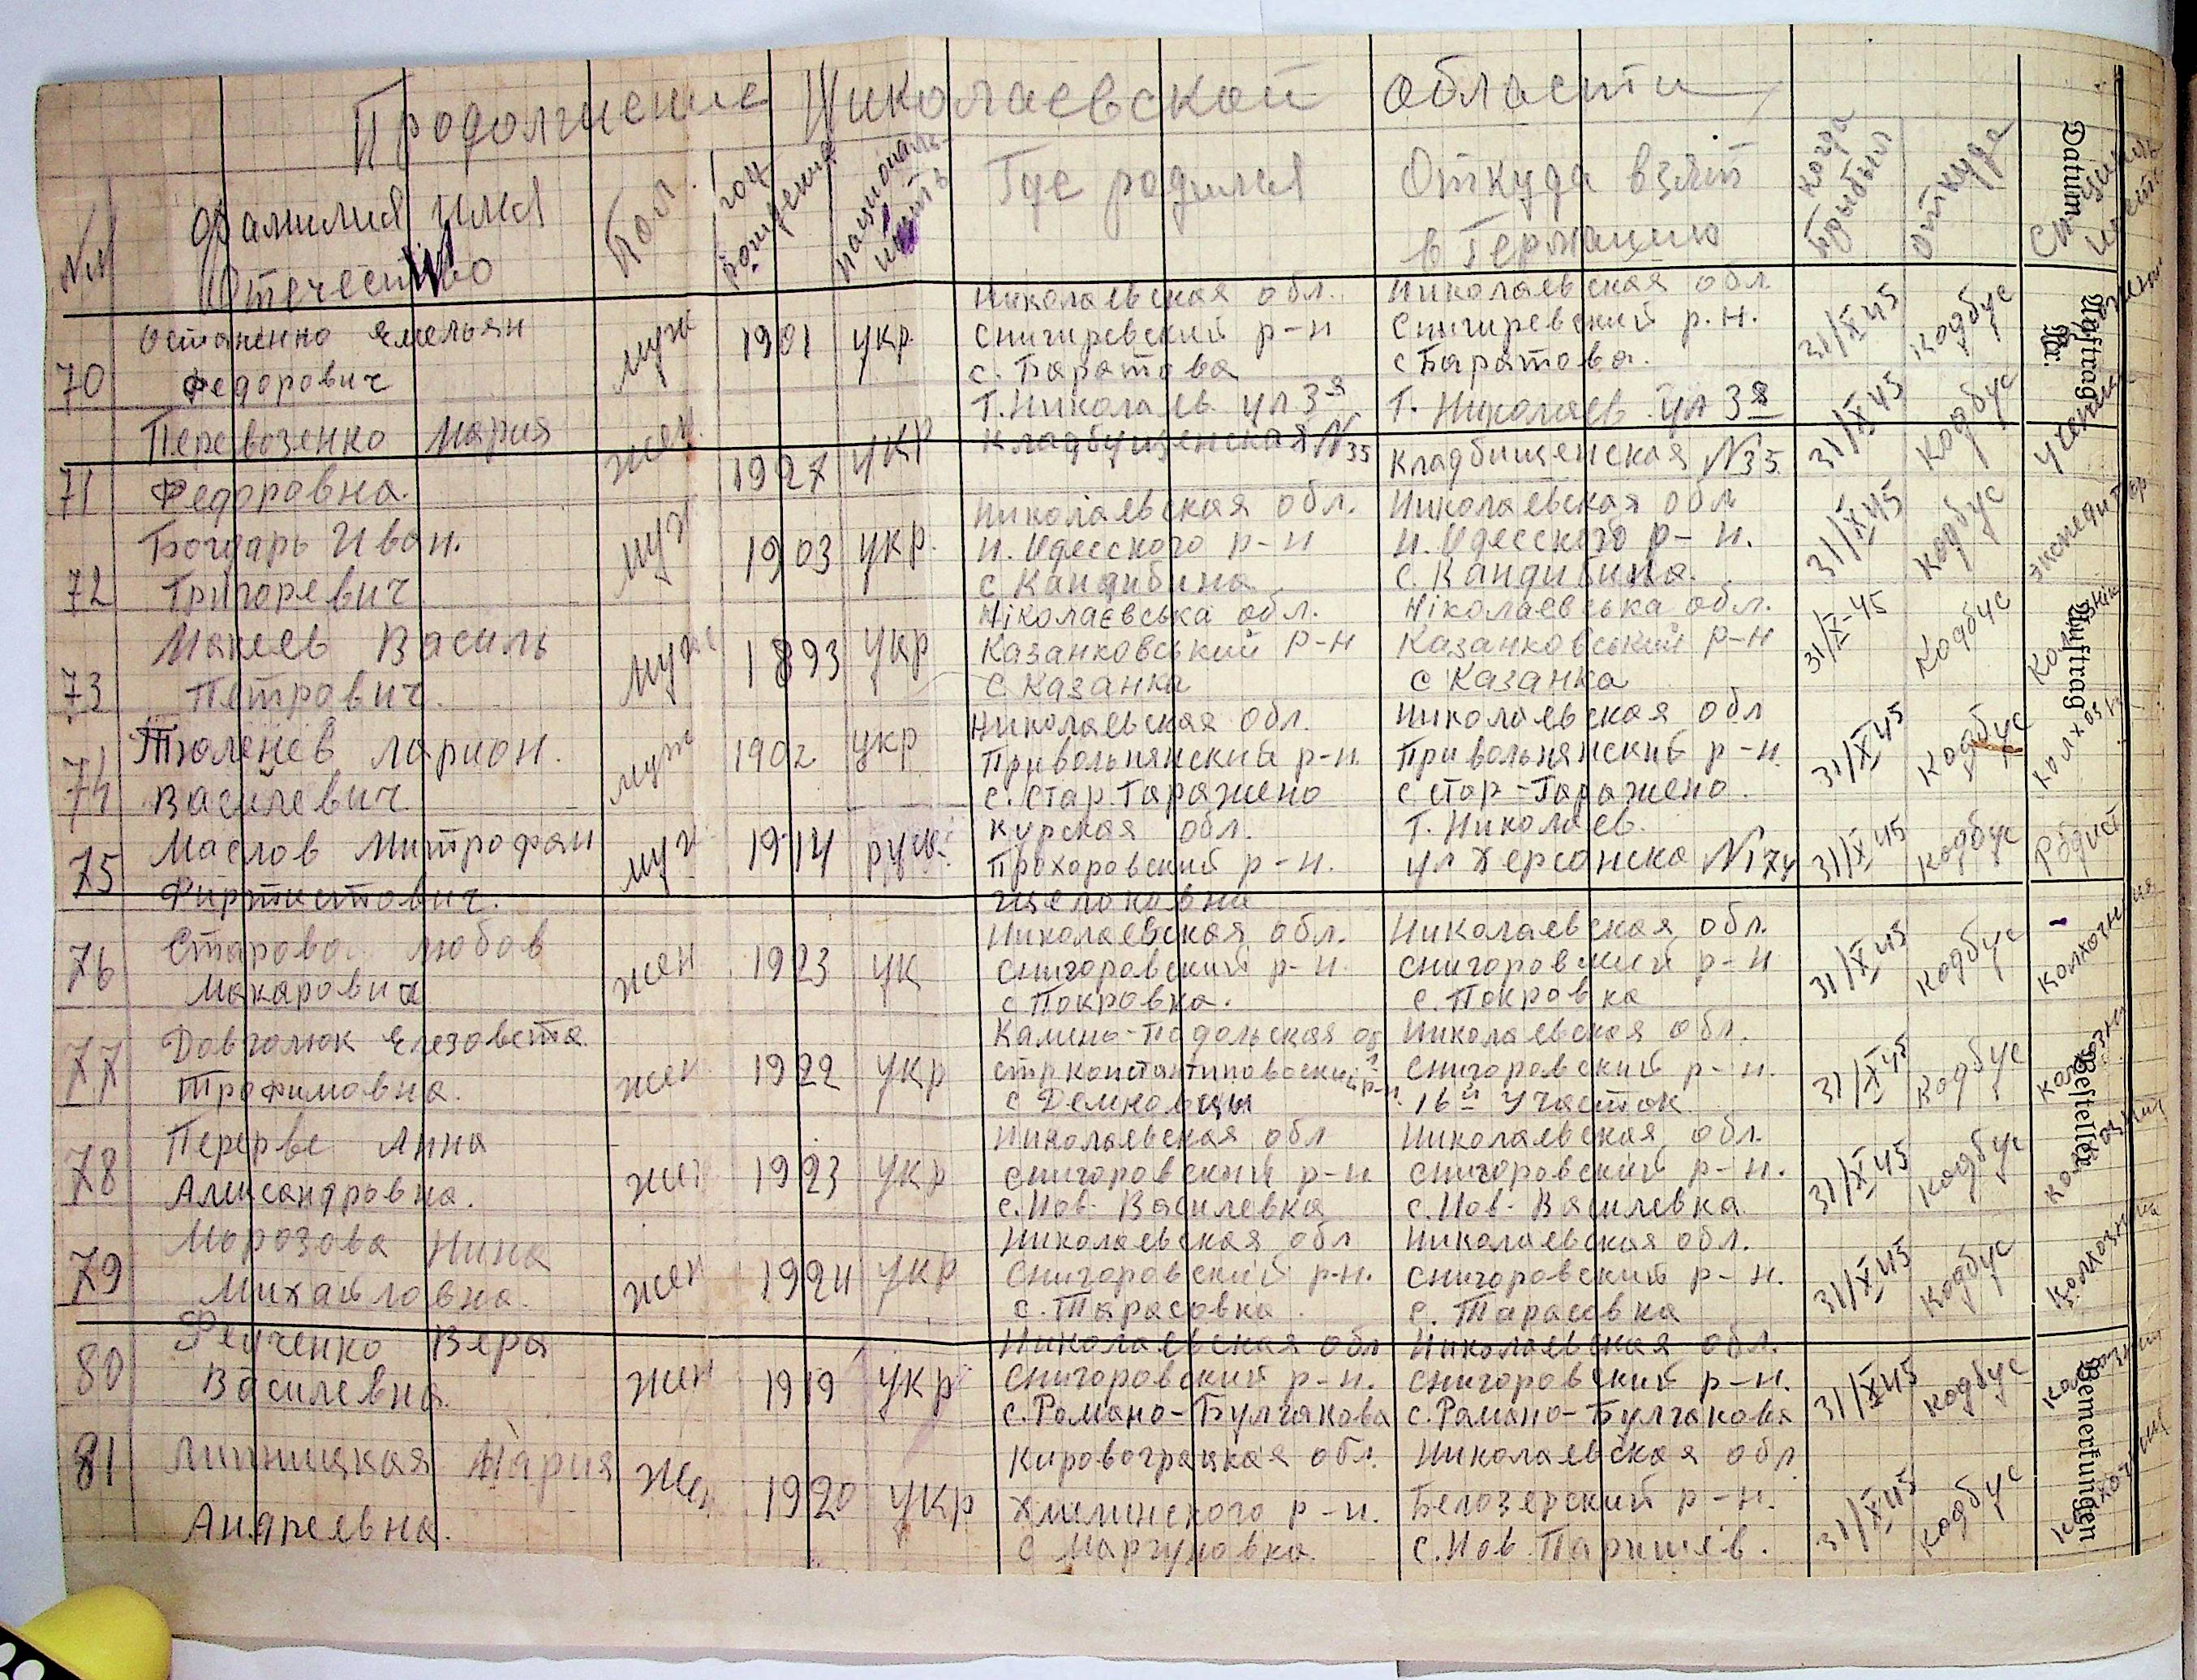 Продолжение Николаевской области
NN
Фамилия имя
Отечество
Пол.
год рождения
националь-
ность
Где родился
Откуда взят
в Германию
когда
прыбыл
откуда
Datum
70
Останенко Ямельян
Федорович
муж
1901
укр.
Николаевская обл.
Снигиревский р-н
с. Баратова
Николаевская обл
Снигиревский р.н.
с Баратова.
31/X 45
кодбус
Auftrag
Nr.
71
Перевозенко Мария
Федоровна.
жен.
1927
укр
Г. Николаев ул 3-я
Кладбущенская N35
Г. Николаев ул 3я
Кладбищенская N35
31/X 45
кодбус
72
Бондарь Иван.
Григоревич
муж
1903
укр.
Николаевская обл.
Н. Одесского р-н
с Кандибина
Николаевская обл
Н. Одесского р-н.
с. Кандибина.
31/X 45
кодбус
экспедитор
73
Макеев Василь
Петрович.
муж
1893
укр
Ніколаєвська обл.
Казанковський р-н
с Казанка
Ніколаевська обл.
Казанковський р-н
с Казанка
31/X-45
Кодбус
Auftrag
74
Тюленев Ларион.
Василевич.
муж
1902
укр
Николаевская обл.
Привольнянский р-н.
с. Стар. Гаражено
Николаевская обл
Привольнянский р-н.
с стар-Гаражено.
31/X 45
Кодбус
75
Маслов Митрофан
муж
1914
Курская обл.
Прохоровский р-н.
Г. Николаев.
ул Херсонска N174
31/X 45
Кодбус
76
Макарович
жен
1923
ук
Николаевская обл.
Снигоровский р-н.
с Покровка.
Николаевская обл.
Снигоровский р-н
с. Покровка
31/X 45
Кодбус
77
Довголюк Елезовета.
Трофимовна.
жен.
1922
укр
Камено-Подольская обл
с Демковцы
Николаевская обл.
Снигоровский р-н.
16й Участок
31/X 45
Кодбус
Besteller
78
Перерве Анна
Аликсандровна.
жен
1923
укр
Николаевская обл
Снигоровский р-н
с. Нов. Василевка
Николаевская обл.
Снигоровский р-н.
с. Нов. Василевка
31/X 45
Кодбус
79
Морозова Нина
Михайловна.
жен
1924
укр
Николаевская обл
Снигоровский р-н.
с. Тарасовка.
Николаевская обл.
Снигоровский р-н.
с. Тарасовка
31/X 45
Кодбус
80
Вера
Василевна.
жен
1919
укр
Николаевская обл
Снигоровский р-н.
с. Романо-Булгакова
Николаевская обл.
Снигоровский р-н.
с. Романо-Булгакова
31/X 45
Кодбус
Bemerkungen
81
Липницкая Мария
Андреевна.
жен
1920
укр
Кировограцкая обл.
Хмелинского р-н.
Николаевская обл
Белозерский р-н.
31/X 45
Кодбус